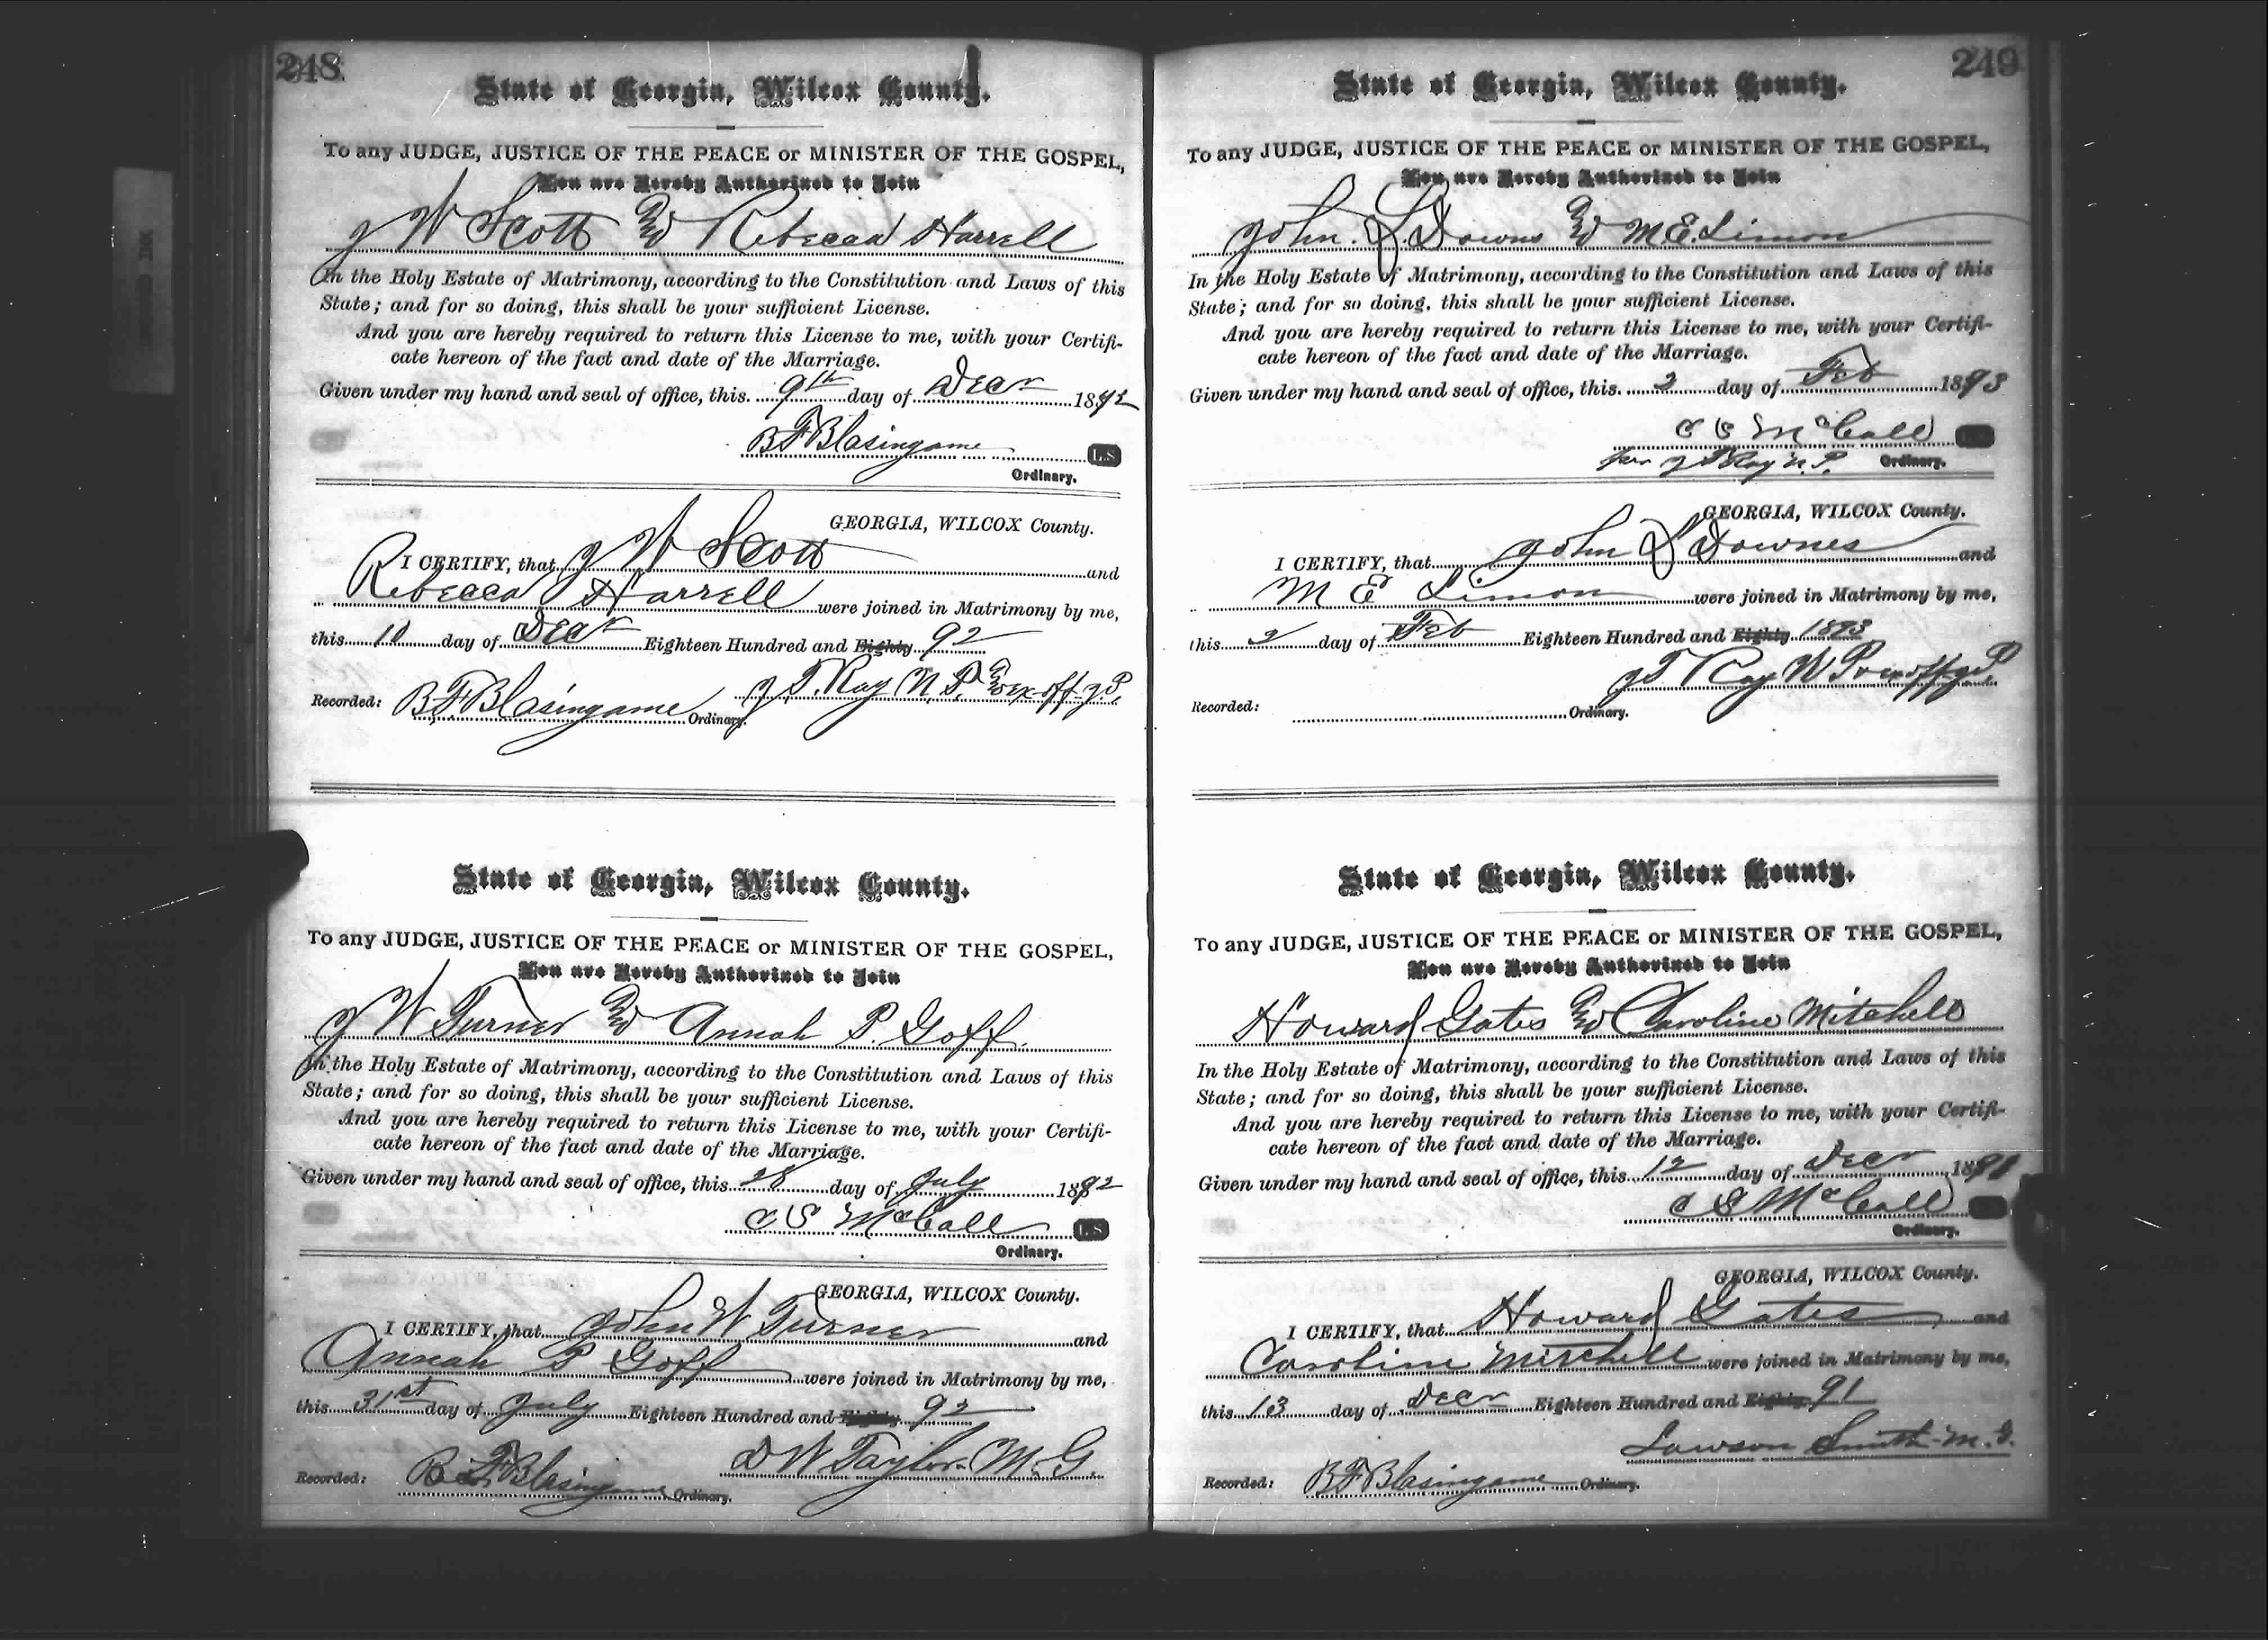 248
State of Georgia, Wilcox County.
To any JUDGE, JUSTICE OF THE PEACE or MINISTER OF THE GOSPEL,
You are Hereby Authorized to Join
J W Scott & Rebecca Harrell
In the Holy Estate of Matrimony, according to the Constitution and Laws of this
State; and for so doing, this shall be your sufficient License.
And you are hereby required to return this License to me, with your Certifi-
cate hereon of the fact and date of the Marriage.
Given under my hand and seal of office, this 9th day of Decr 1892
B F Blasingame L.S
Ordinary.
GEORGIA, WILCOX County.
I CERTIFY, that J W Scott and
Rebecca Harrell were joined in Matrimony by me,
this 10 day of Decr Eighteen Hundred and Eighty 92
J T. Ray N.P. & ex off J.P.
Recorded: B.F. Blasingame Ordinary.
State of Georgia, Wilcox County.
To any JUDGE, JUSTICE OF THE PEACE or MINISTER OF THE GOSPEL,
You are Hereby Authorized to Join
J W Turner & Annah P. Goff.
In the Holy Estate of Matrimony, according to the Constitution and Laws of this
State; and for so doing, this shall be your sufficient License.
And you are hereby required to return this License to me, with your Certifi-
cate hereon of the fact and date of the Marriage.
Given under my hand and seal of office, this 28 day of July 1892
C S McCall L.S
Ordinary.
GEORGIA, WILCOX County.
I CERTIFY, that John W Turner and
Annah P Goff were joined in Matrimony by me,
this 31st day of July Eighteen Hundred and Eighty 92
D W Taylor M.G.
Recorded: B F Blasingame Ordinary.
249
State of Georgia, Wilcox County.
To any JUDGE, JUSTICE OF THE PEACE or MINISTER OF THE GOSPEL,
You are Hereby Authorized to Join
John. L. Downs & M.E. Limon
In the Holy Estate of Matrimony, according to the Constitution and Laws of this
State; and for so doing, this shall be your sufficient License.
And you are hereby required to return this License to me, with your Certifi-
cate hereon of the fact and date of the Marriage.
Given under my hand and seal of office, this 2 day of Feb 1893
C S McCall
per J T Ray N.P. Ordinary.
GEORGIA, WILCOX County.
I CERTIFY, that John L Downes and
M E Limon were joined in Matrimony by me,
this 2 day of Feb Eighteen Hundred and Eighty 1893
J T Ray N P & ex off J.P.
Recorded: Ordinary.
State of Georgia, Wilcox County.
To any JUDGE, JUSTICE OF THE PEACE or MINISTER OF THE GOSPEL,
You are Hereby Authorized to Join
Howard Gates & Caroline Mitchell
In the Holy Estate of Matrimony, according to the Constitution and Laws of this
State; and for so doing, this shall be your sufficient License.
And you are hereby required to return this License to me, with your Certifi-
cate hereon of the fact and date of the Marriage.
Given under my hand and seal of office, this 12 day of Decr 1891
C S McCall
Ordinary.
GEORGIA, WILCOX County.
I CERTIFY, that Howard Gates and
Caroline Mitchell were joined in Matrimony by me,
this 13 day of Decr Eighteen Hundred and Eighty 91
Lawson Smith M.G.
Recorded: B F Blasingame Ordinary.